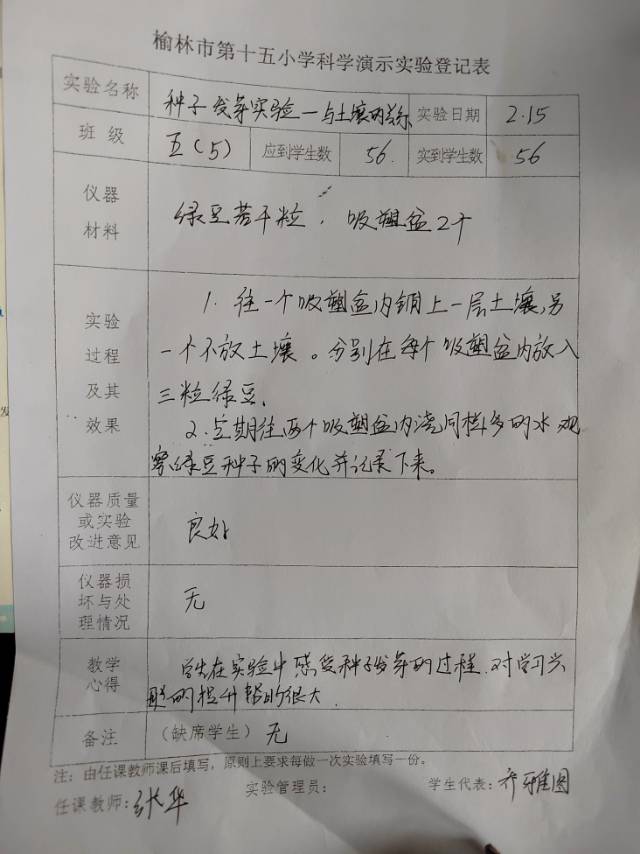 榆林市第十五小学科学演示实验登记表
实验名称 种子发芽实验一与土壤的关系 实验日期 2.15
班级 五(5) 应到学生数 56. 实到学生数 56
仪器材料 绿豆若干粒，吸塑盆2个
实验过程及其效果 1. 往一个吸塑盆内铺上一层土壤,另
一个不放土壤。分别在每个吸塑盆内放入
三粒绿豆.
2.定期往两个吸塑盆内浇同样多的水,观
察绿豆种子的变化并记录下来。
仪器质量或实验改进意见 良好
仪器损坏与处理情况 无
教学心得 学生在实验中感受种子发芽的过程.对学习兴
趣的提升帮助很大.
备注 (缺席学生) 无
注：由任课教师课后填写，原则上要求每做一次实验填写一份。
任课教师:张华 实验管理员: 学生代表:乔雅图
发